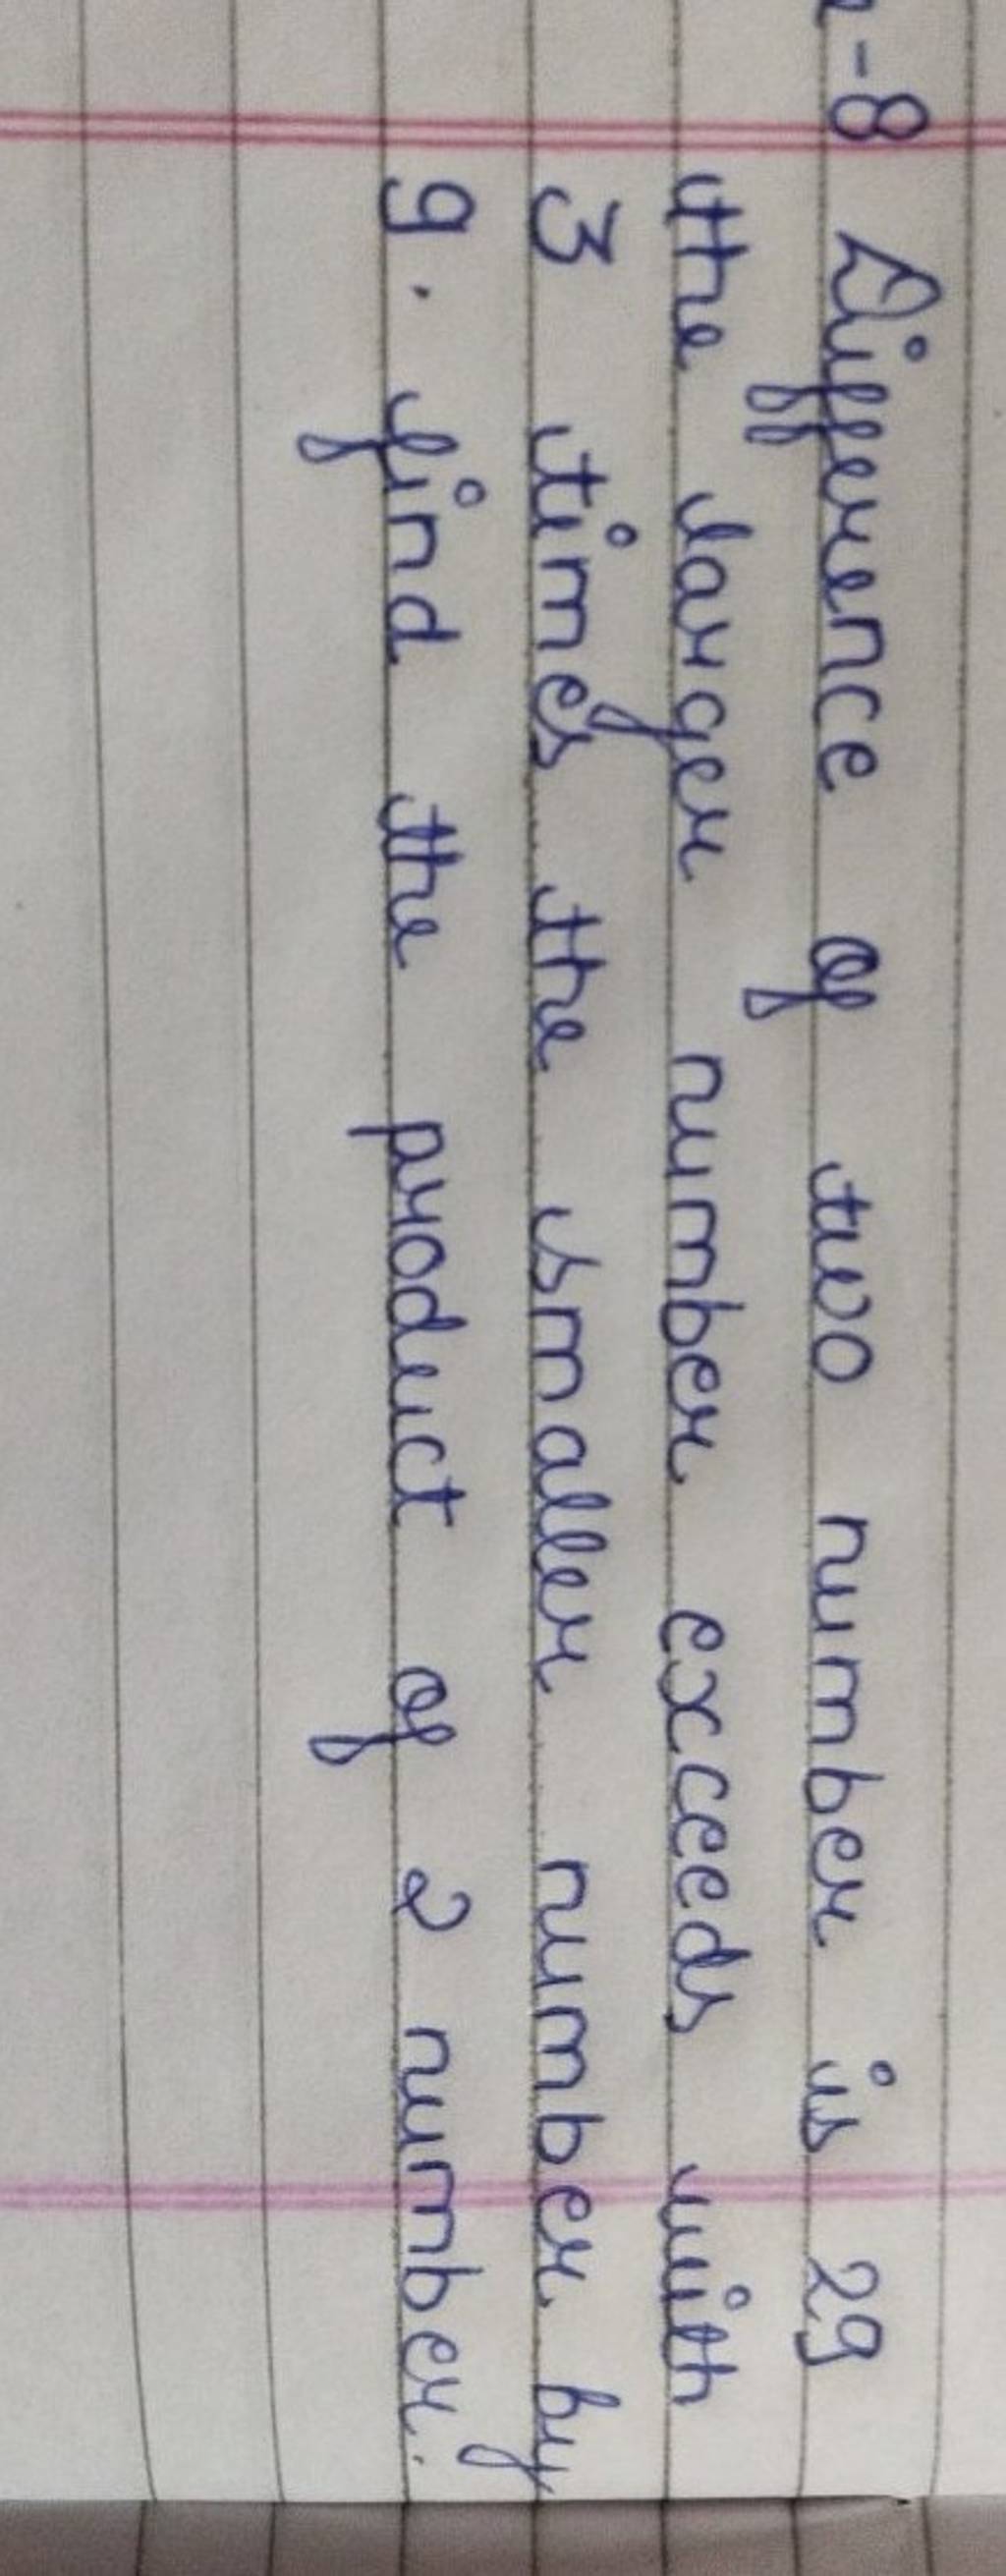 -8 Difference of two number is 29
the larger number exceeds with
3 times the smaller number by
9. find the product of 2 number.